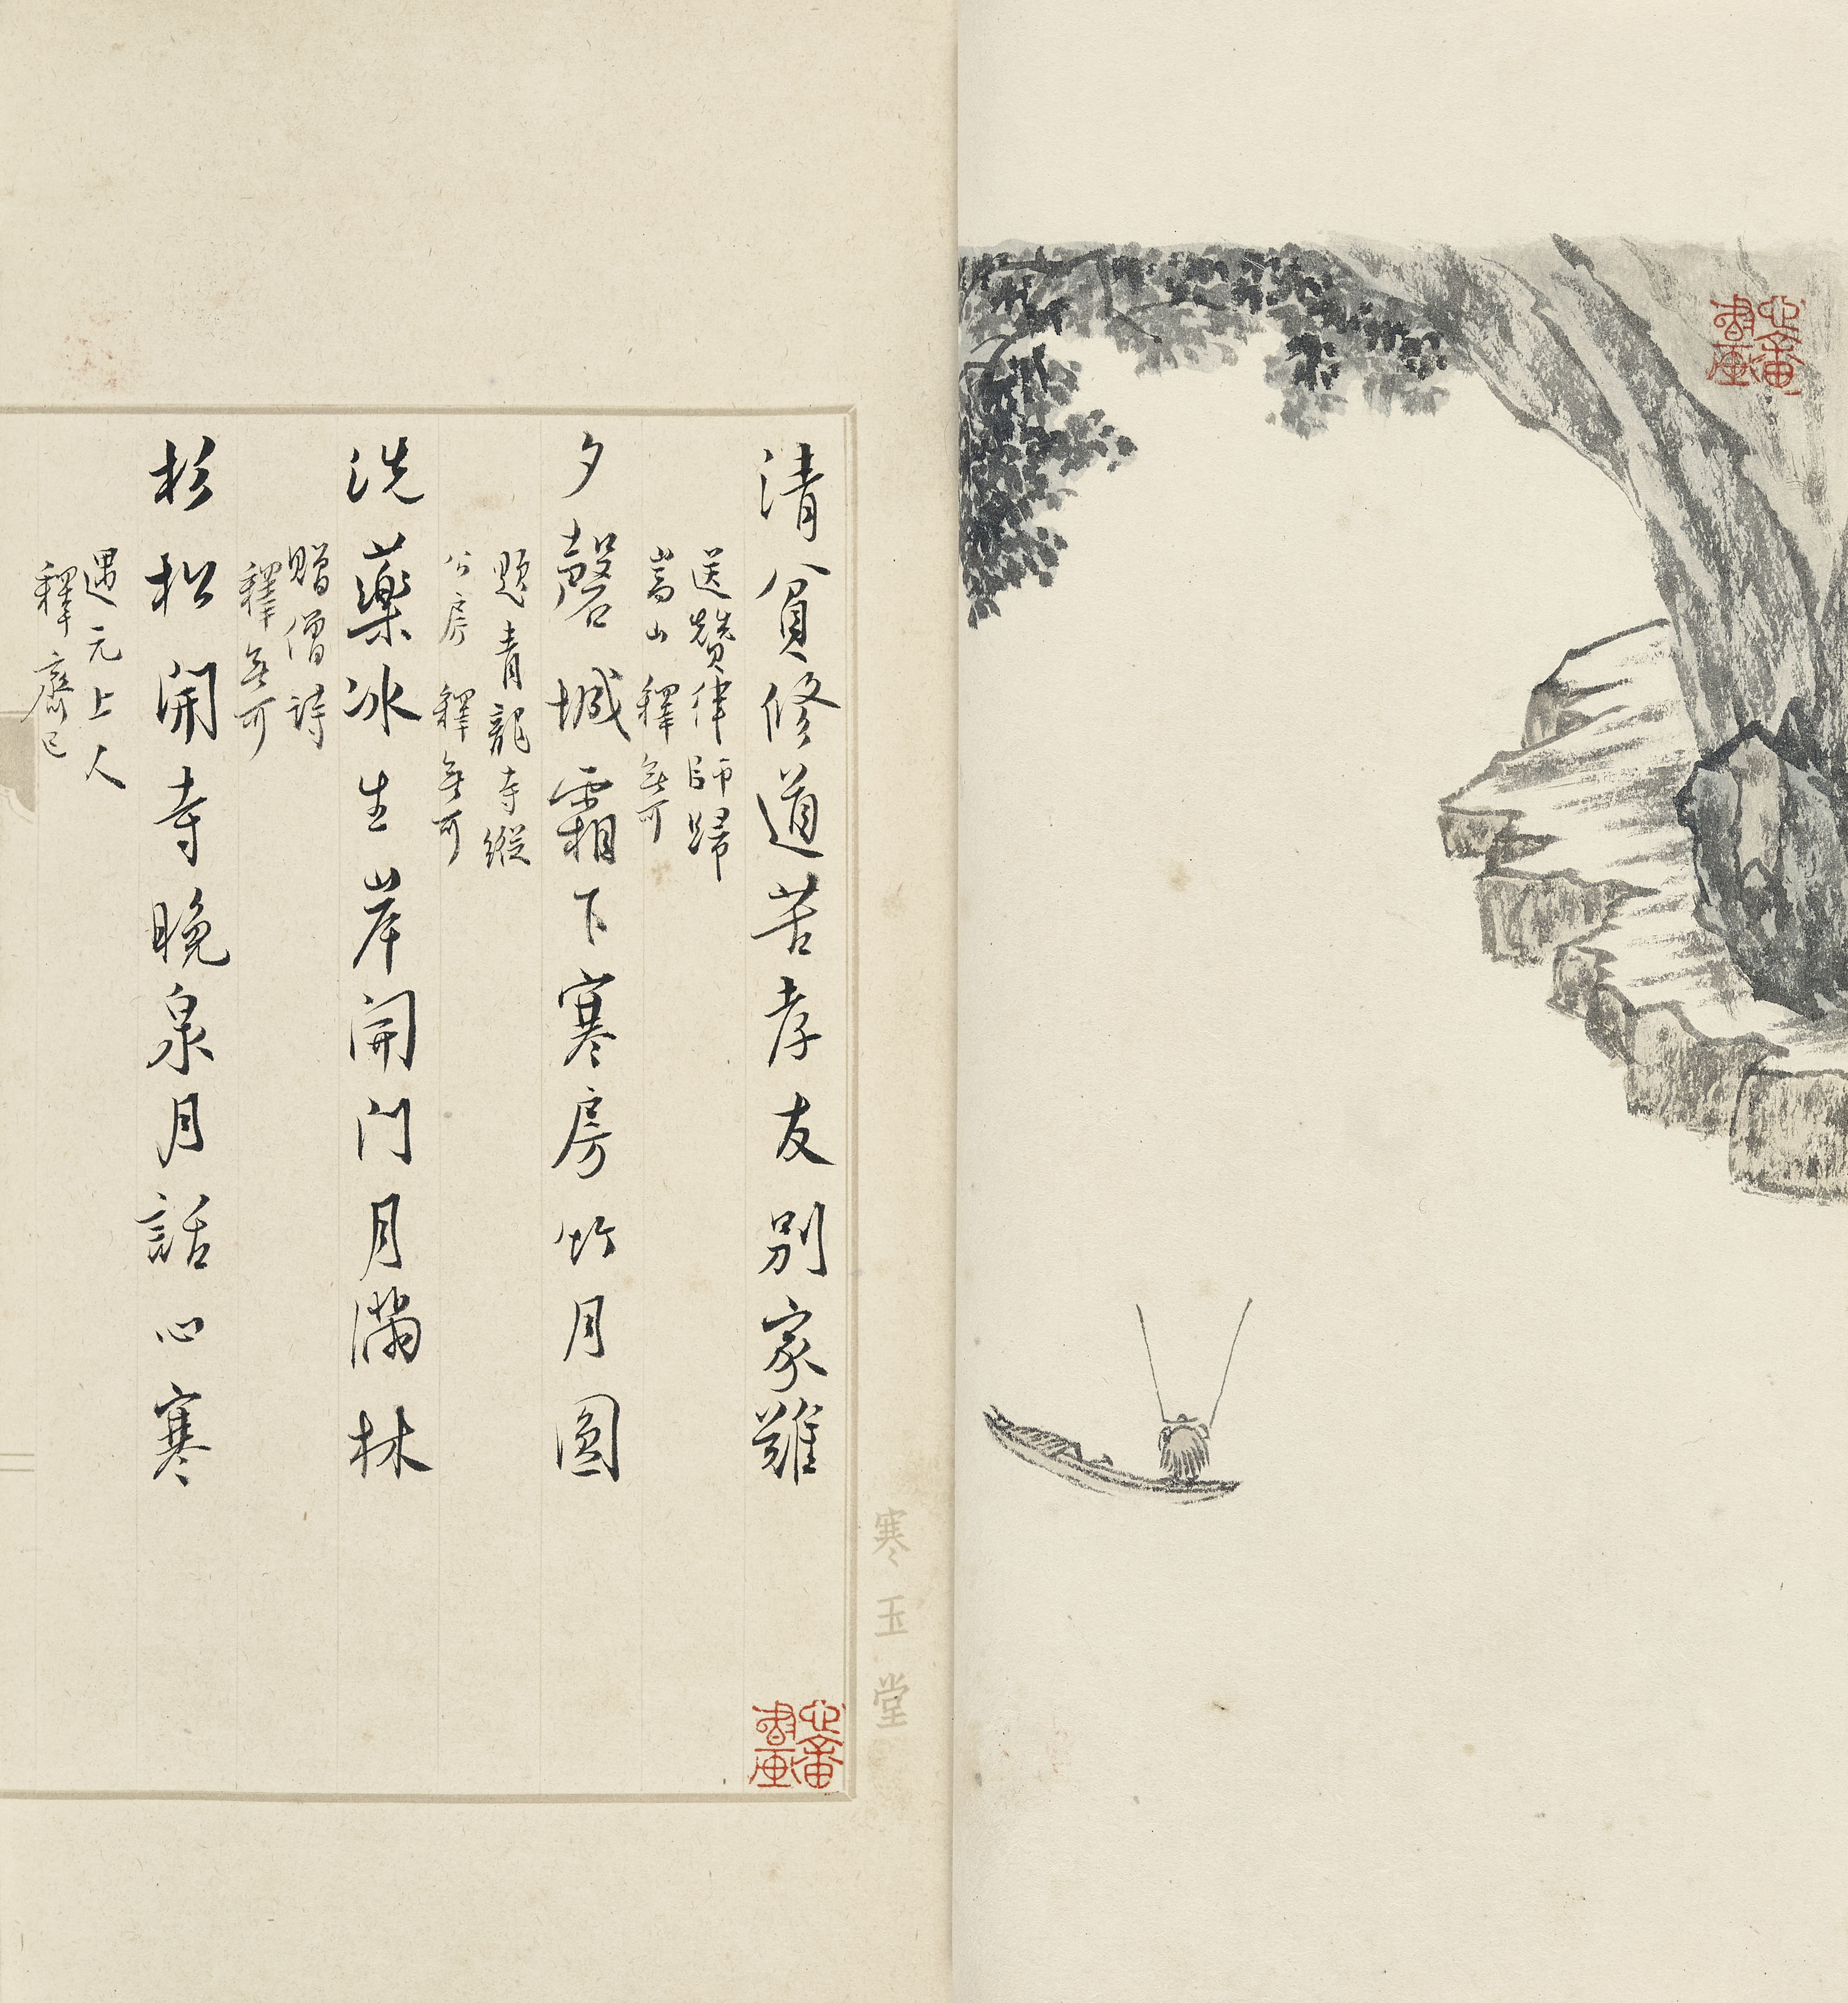 心畬書畫
寒玉堂
清貧修道苦孝友別家難
送贊律師歸
嵩山 釋無可
夕磬城霜下寒房竹月圓
題青龍寺縱
公房 釋無可
洗藥冰生岸開門月滿林
贈僧詩
釋無可
杉松開寺晚泉月話心寒
遇元上人
釋齊己
心畬書畫